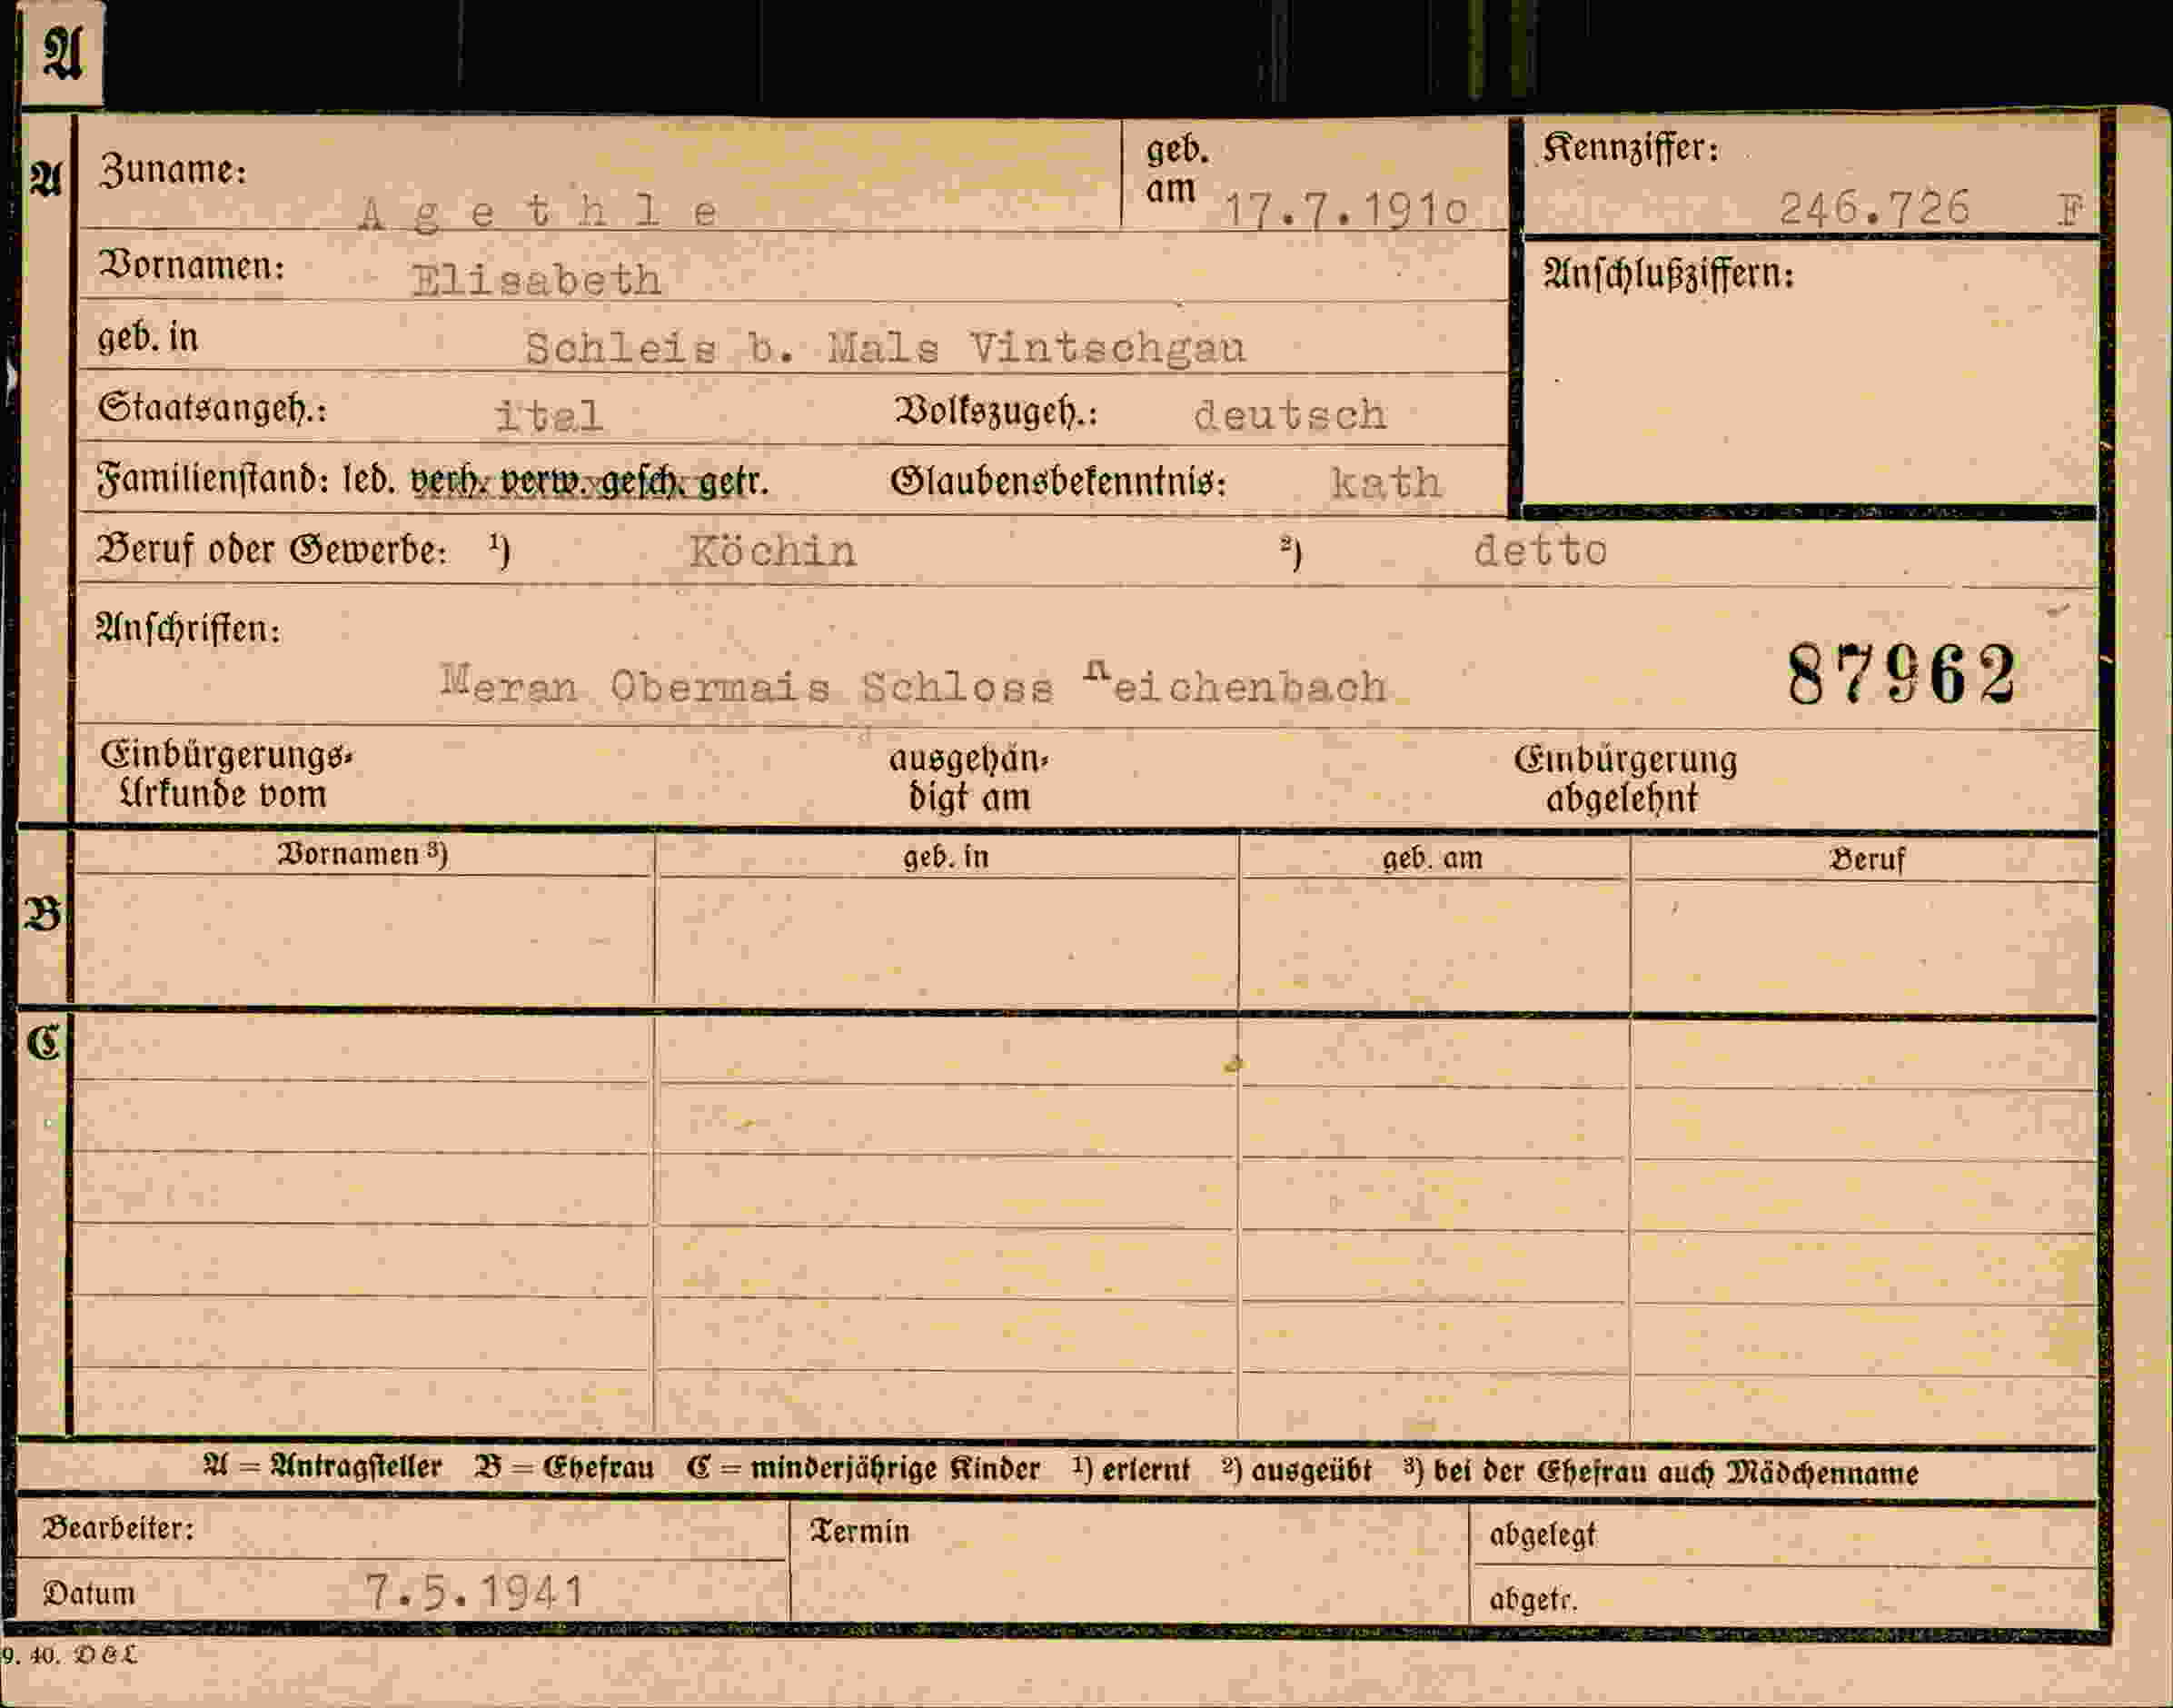 A
A
Zuname: Agethle geb. am 17.7.191o Kennziffer: 246.726 F
Vornamen: Elisabeth Anschlußziffern:
geb. in Schleis b. Mals Vintschgau
Staatsangeh.: ital Volkszugeh.: deutsch
Familienstand: led. verh. verw. gesch. getr. Glaubensbekenntnis: kath
Beruf oder Gewerbe: ¹) Köchin ²) detto
Anschriften:
87962
Meran Obermais Schloss Reichenbach
Einbürgerungs- ausgehän- Einbürgerung
Urkunde vom digt am abgelehnt
Vornamen ³) geb. in geb. am Beruf
B
C
A = Antragsteller B = Ehefrau C = minderjährige Kinder ¹) erlernt ²) ausgeübt ³) bei der Ehefrau auch Mädchenname
Bearbeiter: Termin abgelegt
Datum 7.5.1941 abgetr.
9. 40. D & L